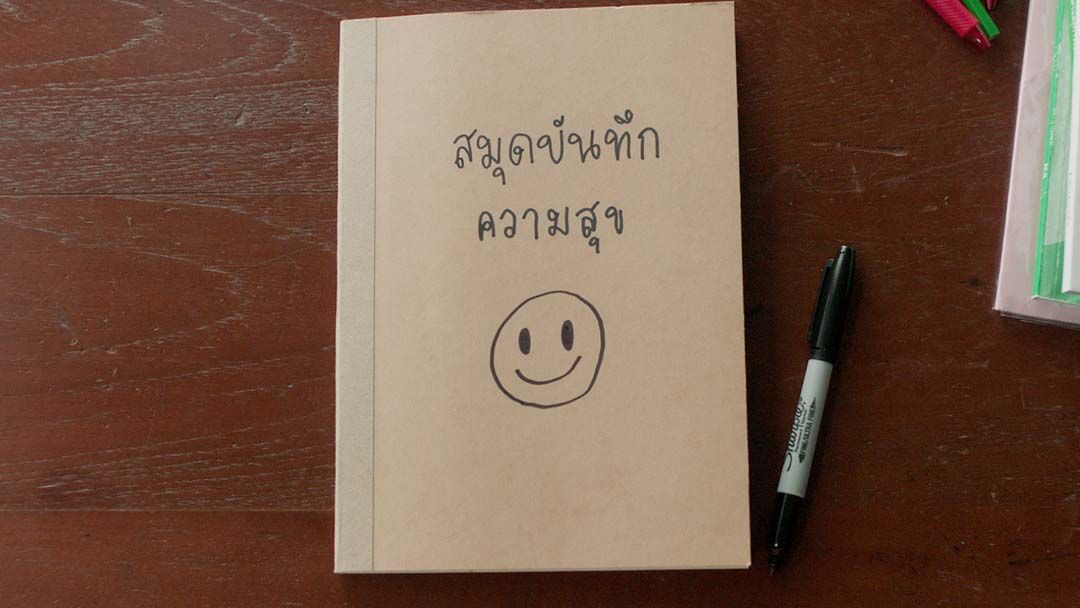 สมุดบันทึก
ความสุข
Sharpie